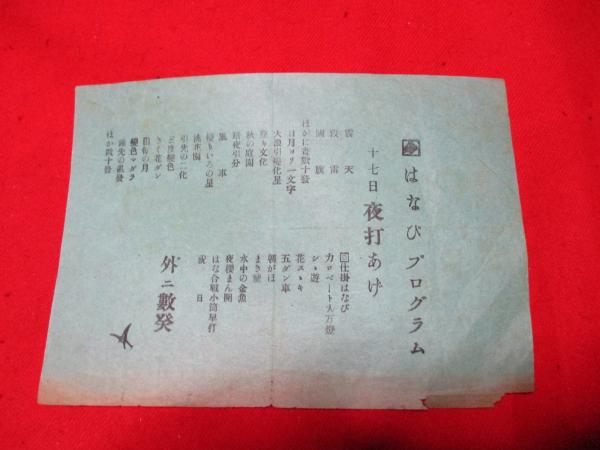 はなびプログラム
十七日 夜打あげ
震天
段雷
國旗
ほかに數十發
日月ヨリ一文字
大柳引變化星
登り文化
秋の庭園
暗夜引分
風車
櫻もいろの星
引先の二化
三度變色
さく花ダン
出和の月
變色マグラ
引先の亂發
ほか數十發
仕掛はなび
カロベート大万燈
シヽ遊
花スヽキ
五ダン車
朝がほ
まき藁
水中の金魚
夜櫻まん開
はな合戰小筒早打
夜目
外ニ數発